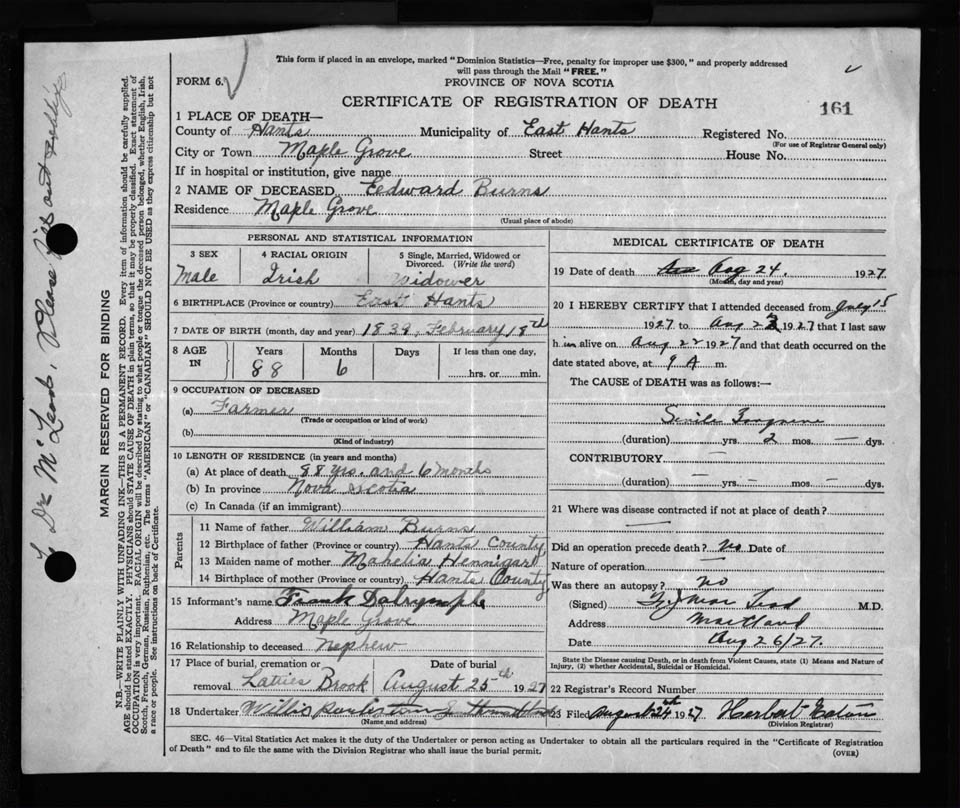 This form if placed in an envelope, marked "Dominion Statistics—Free, penalty for improper use $300," and properly addressed
will pass through the Mail "FREE."
FORM 6.
PROVINCE OF NOVA SCOTIA
CERTIFICATE OF REGISTRATION OF DEATH
161
1 PLACE OF DEATH—
County of Hants Municipality of East Hants Registered No.
(For use of Registrar General only)
City or Town Maple Grove Street House No.
If in hospital or institution, give name
2 NAME OF DECEASED Eedward Burns
Residence Maple Grove
(Usual place of abode)
PERSONAL AND STATISTICAL INFORMATION
3 SEX 4 RACIAL ORIGIN 5 Single, Married, Widowed or Divorced. (Write the word)
Male Irish Widower
6 BIRTHPLACE (Province or country) East Hants
7 DATE OF BIRTH (month, day and year) 1839, February 18th
8 AGE IN Years Months Days If less than one day,
88 6 hrs. or min.
9 OCCUPATION OF DECEASED
(a) Farmer
(Trade or occupation or kind of work)
(b)
(Kind of industry)
10 LENGTH OF RESIDENCE (in years and months)
(a) At place of death 88 yrs. and 6 months
(b) In province Nova Scotia
(c) In Canada (if an immigrant)
Parents
11 Name of father William Burns
12 Birthplace of father (Province or country) Hants County
13 Maiden name of mother Mahelia Hennigar
14 Birthplace of mother (Province or country) Hants County
15 Informant's name Frank Dalrymple
Address Maple Grove
16 Relationship to deceased Nephew
17 Place of burial, cremation or removal Latties Brook
Date of burial August 25th 1927
18 Undertaker Willis
(Name and address)
MEDICAL CERTIFICATE OF DEATH
19 Date of death Aug 24. 1927
(Month, day and year)
20 I HEREBY CERTIFY that I attended deceased from July 15
1927 to Aug 23 1927 that I last saw
h im alive on Aug 22 1927 and that death occurred on the
date stated above, at 9 A m.
The CAUSE of DEATH was as follows:—
Senile Gangrene
(duration) yrs. 2 mos. — dys.
CONTRIBUTORY —
(duration) — yrs. — mos. — dys.
21 Where was disease contracted if not at place of death?
—
Did an operation precede death? No Date of
Nature of operation
Was there an autopsy? No
(Signed) M.D.
Address Maitland
Date Aug 26/27.
State the Disease causing Death, or in death from Violent Causes, state (1) Means and Nature of
Injury, (2) whether Accidental, Suicidal or Homicidal.
22 Registrar's Record Number
23 Filed August 24th 1927 Herbert Eaton
(Division Registrar)
SEC. 46—Vital Statistics Act makes it the duty of the Undertaker or person acting as Undertaker to obtain all the particulars required in the "Certificate of Registration
of Death" and to file the same with the Division Registrar who shall issue the burial permit.
(OVER)
Dr McLeod, Please
MARGIN RESERVED FOR BINDING
N.B.—WRITE PLAINLY WITH UNFADING INK—THIS IS A PERMANENT RECORD. Every item of information should be carefully supplied.
AGE should be stated EXACTLY. PHYSICIANS should STATE CAUSE OF DEATH in plain terms, so that it may be properly classified. Exact statement of
OCCUPATION is very important. RACIAL ORIGIN will be described by stating to what people or tongue the deceased person belonged, whether English, Irish,
Scotch, French, German, Russian, Ruthenian, etc. The terms "AMERICAN" or "CANADIAN" SHOULD NOT BE USED as they express citizenship but not
a race or people. See instructions on back of Certificate.